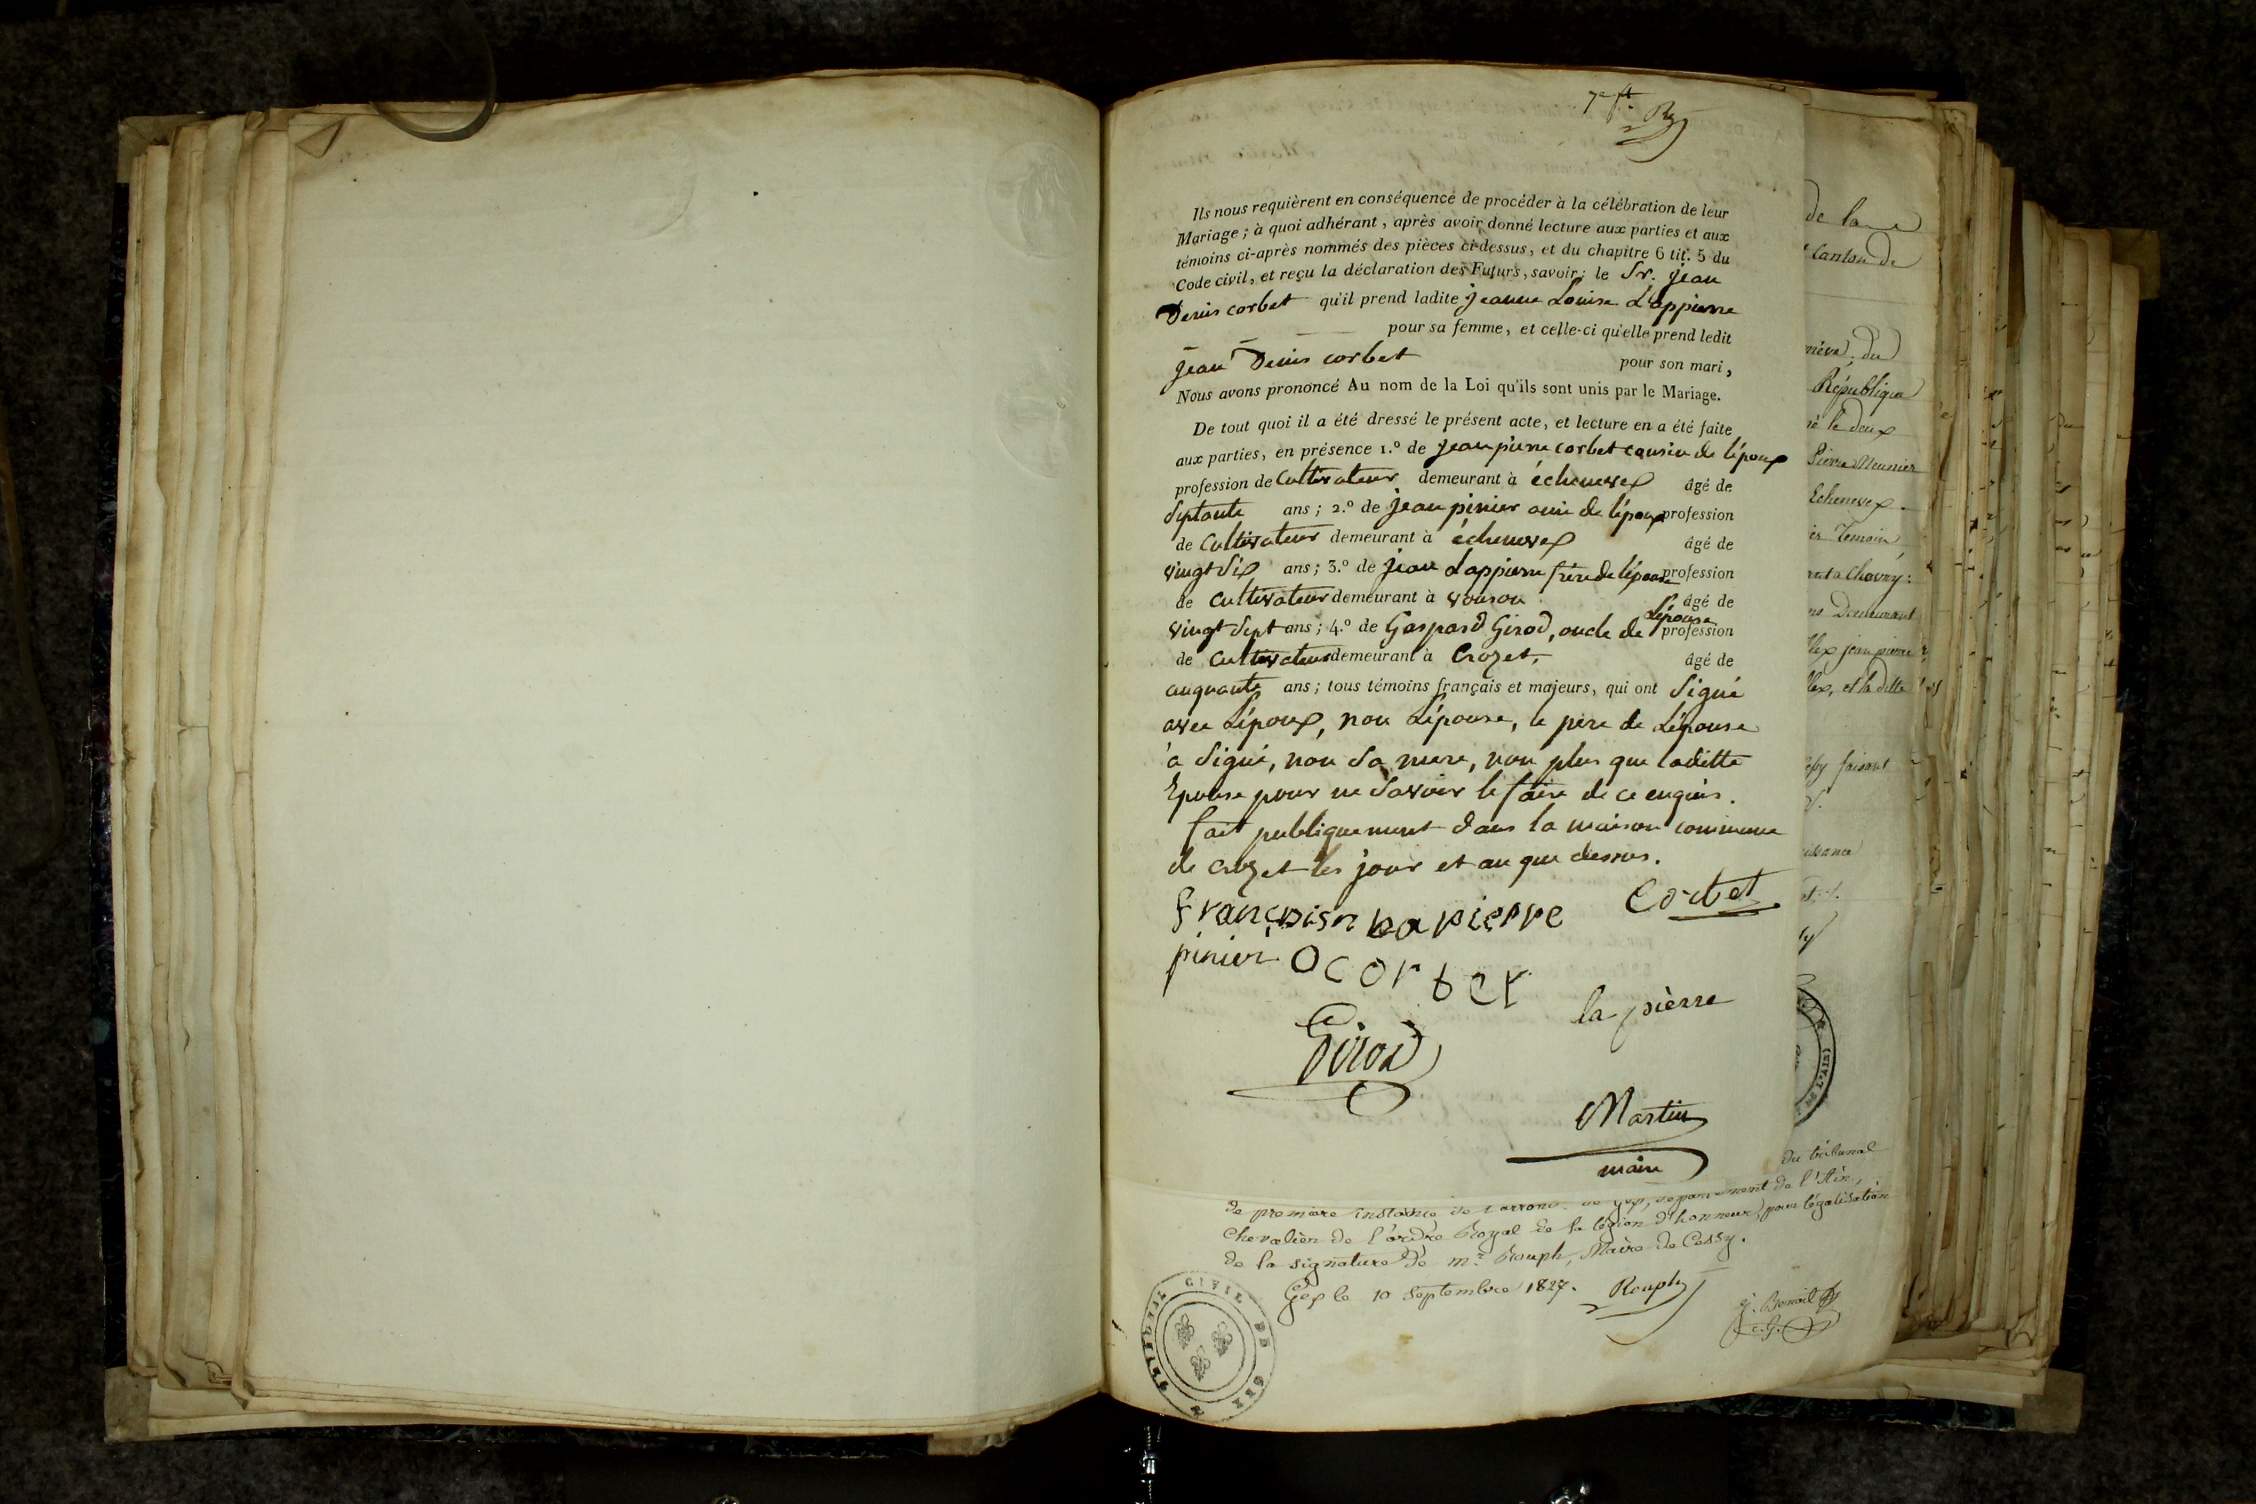 7e ft.
Ils nous requièrent en conséquence de procéder à la célébration de leur
Mariage ; à quoi adhérant , après avoir donné lecture aux parties et aux
témoins ci-après nommés des pièces ci-dessus, et du chapitre 6 tit. 5 du
Code civil, et reçu la déclaration des Futurs, savoir ; le Sr. jean
Denis corbet qu'il prend ladite jeanne Louise Lappierre
pour sa femme, et celle-ci qu'elle prend ledit
jean Denis corbet pour son mari ,
Nous avons prononcé Au nom de la Loi qu'ils sont unis par le Mariage.
De tout quoi il a été dressé le présent acte, et lecture en a été faite
aux parties, en présence 1.º de jean pierre corbet cousin de l'époux
profession de Cultivateur demeurant à échenevex âgé de
Septante ans ; 2.º de jean pinier ami de l'époux profession
de Cultivateur demeurant à échenevex âgé de
vingt Six ans ; 3.º de jean Lappierre frère de l'épouse profession
de cultivateur demeurant à vouson âgé de
vingt Sept ans ; 4.º de Gaspard Girod, oncle de L'épouse profession
de cultivateur demeurant à Crozet, âgé de
cinquante ans ; tous témoins français et majeurs, qui ont Signé
avec L'époux, non L'épouse, le père de L'épouse
à Signé, non Sa mere, non plus que laditte
Epouse pour ne Savoir le faire de ce enquis.
fait publiquement dans la maison commune
de crozet les jour et an que dessus.
Corbet
françoisn La pierre
pinier O corbet
la pièrre
Girod
Martin
maire
du tribunal
de première instance de l'arrond. de Gex, département de l'Ain,
Chevalier de l'ordre Royal de la légion d'honneur, pour légalisation
de la signature de mr. Rouph, Maire de Cessy.
Gex le 10 Septembre 1827. Rouph
g. Benoit
c. g.
TRIBUNAL CIVIL DE GEX
de la
Canton de
du
République
le deux
Pierre Meunier
Echenevex
Temoin
Chevry :
Demeurant
jean pierre
et la ditte
faisant